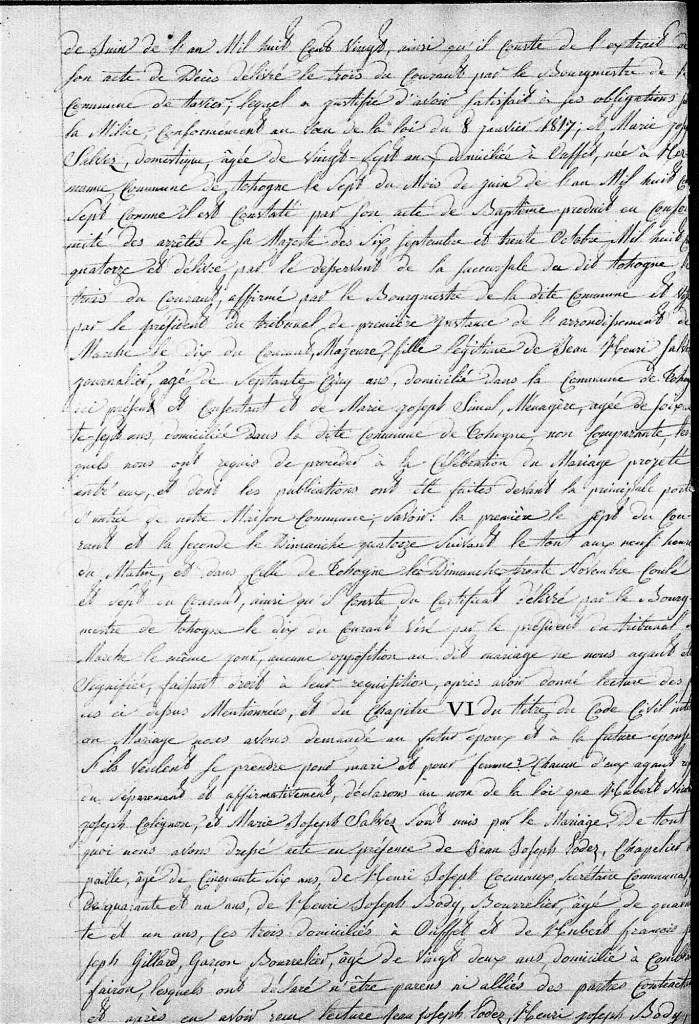 de Juin de l'an Mil huit Cent Vingt, ainsi qu'il Conste de l'extrait de
son acte de Décès délivré le trois du Courant par le Bourgmestre de la
Commune de tavier; lequel a justifié d'avoir satisfait à ses obligations
la Milice, Conformément au Vœu de la loi du 8 janvier 1817; et Marie jos
Salvez, domestique, âgée de Vingt-sept ans, domiciliée à Ouffet, née à Her
manne Commune de tohogne le sept du Mois de juin de l'an Mil huit C
Sept Comme il est Constaté par son acte de Baptême produit en Confor
mité des arrêtés de Sa Majesté des Six septembre et trente Octobre Mil huit C
quatorze et délivré par le desservant de la succursale du dit tohogne le
trois du Courant, affirmé par le Bourgmestre de la dite Commune et
par le président du tribunal de première instance de l'arrondissement de
Marche le dix du Courant, Majeure, fille légitime de Jean Henri Salve
journalier, agé de Septante Cinq ans, domicilié dans la Commune de Toho
ici présent et Consentant et de Marie joseph Simal, Ménagère, agée de soixa
te-sept ans, domiciliée dans la dite Commune de Tohogne, non Comparante, les
quels nous ont requis de procéder à la Célébration du Mariage projeté
entre eux, et dont les publications ont été faites devant la principale porte
d'entrée de notre Maison Commune; Savoir: la première le Sept du Cou
rant et la seconde le Dimanche quatorze Suivant le tout aux neuf heures
du Matin, et dans Celle de Tohogne les Dimanches trente Novembre Coulé
et Sept du Courant, ainsi qu'il Conste du Certificat délivré par le Bourg
mestre de tohogne le dix du Courant Visé par le président du tribunal de
Marche le même jour, aucune opposition au dit mariage ne nous ayant été
Signifiée, faisant droit à leur réquisition, après avoir donné lecture des
ces ci dessus Mentionnées, et du Chapitre VI du titre du Code Civil intit
du Mariage nous avons demandé au futur époux et à la future épouse
S'ils veulent se prendre pour mari et pour femme? Chacun d'eux ayant rép
du Séparément et affirmativement, déclarons au nom de la loi que Hubert Nico
joseph Colignon, et Marie Joseph Salvez Sont unis par le Mariage. De tout
quoi nous avons dressé acte en présence de Jean Joseph Todez, Chapelier en
paille, âgé de Cinquante Six ans, de Henri Joseph Cocniaux, Secrétaire Communal,
de quarante et un ans, de Henri Joseph Body, Bourrelier âgé de quaran
te et un ans, Ces trois domiciliés à Ouffet et de Hubert françois jo
seph Gillard, Garçon Bourrelier, âgé de Vingt deux ans, domicilié à Comblain
fairon, lesquels ont déclaré n'être parens ni alliés des parties Contractan
et après en avoir reçu lecture Jean Joseph Todez, Henri Joseph Body